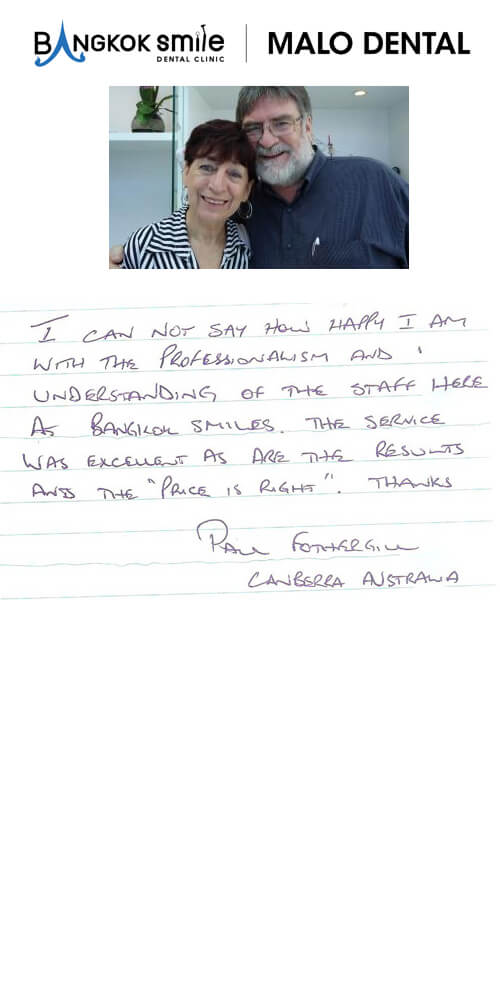 BANGKOK smile
DENTAL CLINIC
MALO DENTAL
I CAN NOT SAY HOW HAPPY I AM
WITH THE PROFESSIONALISM AND
UNDERSTANDING OF THE STAFF HERE
AS BANGKOK SMILES. THE SERVICE
WAS EXCELLENT AS ARE THE RESULTS
AND THE "PRICE IS RIGHT". THANKS
Paul FOTHERGILL
CANBERRA AUSTRALIA